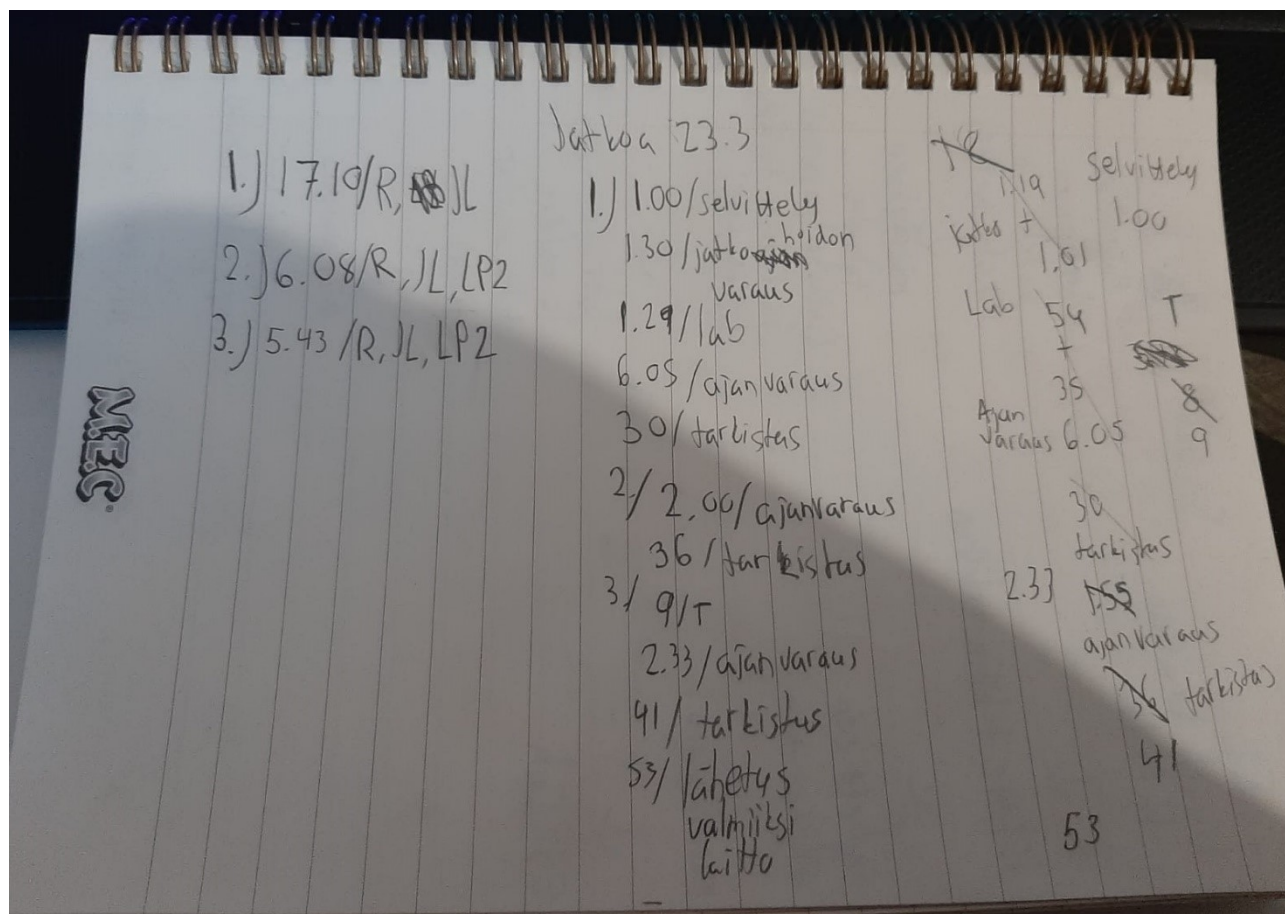 Jatkoa 23.3
1.) 17.10/R, JL
2.) 6.08/R, JL, LP2
3.) 5.43/R, JL, LP2
M.E.C.
1.) 1.00/selvittely
1.30/jatkohoidon
varaus
1.29/lab
6.05/ajanvaraus
30/tarkistus
2/ 2.00/ajanvaraus
36/tarkistus
3/ 9/T
2.33/ajanvaraus
41/tarkistus
53/lähetys
valmiiksi
laitto
1.19
jatko +
1.01
Lab 54
+
35
Ajan
varaus 6.05
30
tarkistus
2.33 1.55
ajanvaraus
36 tarkistus
41
53
selvittely
1.00
T
8
9